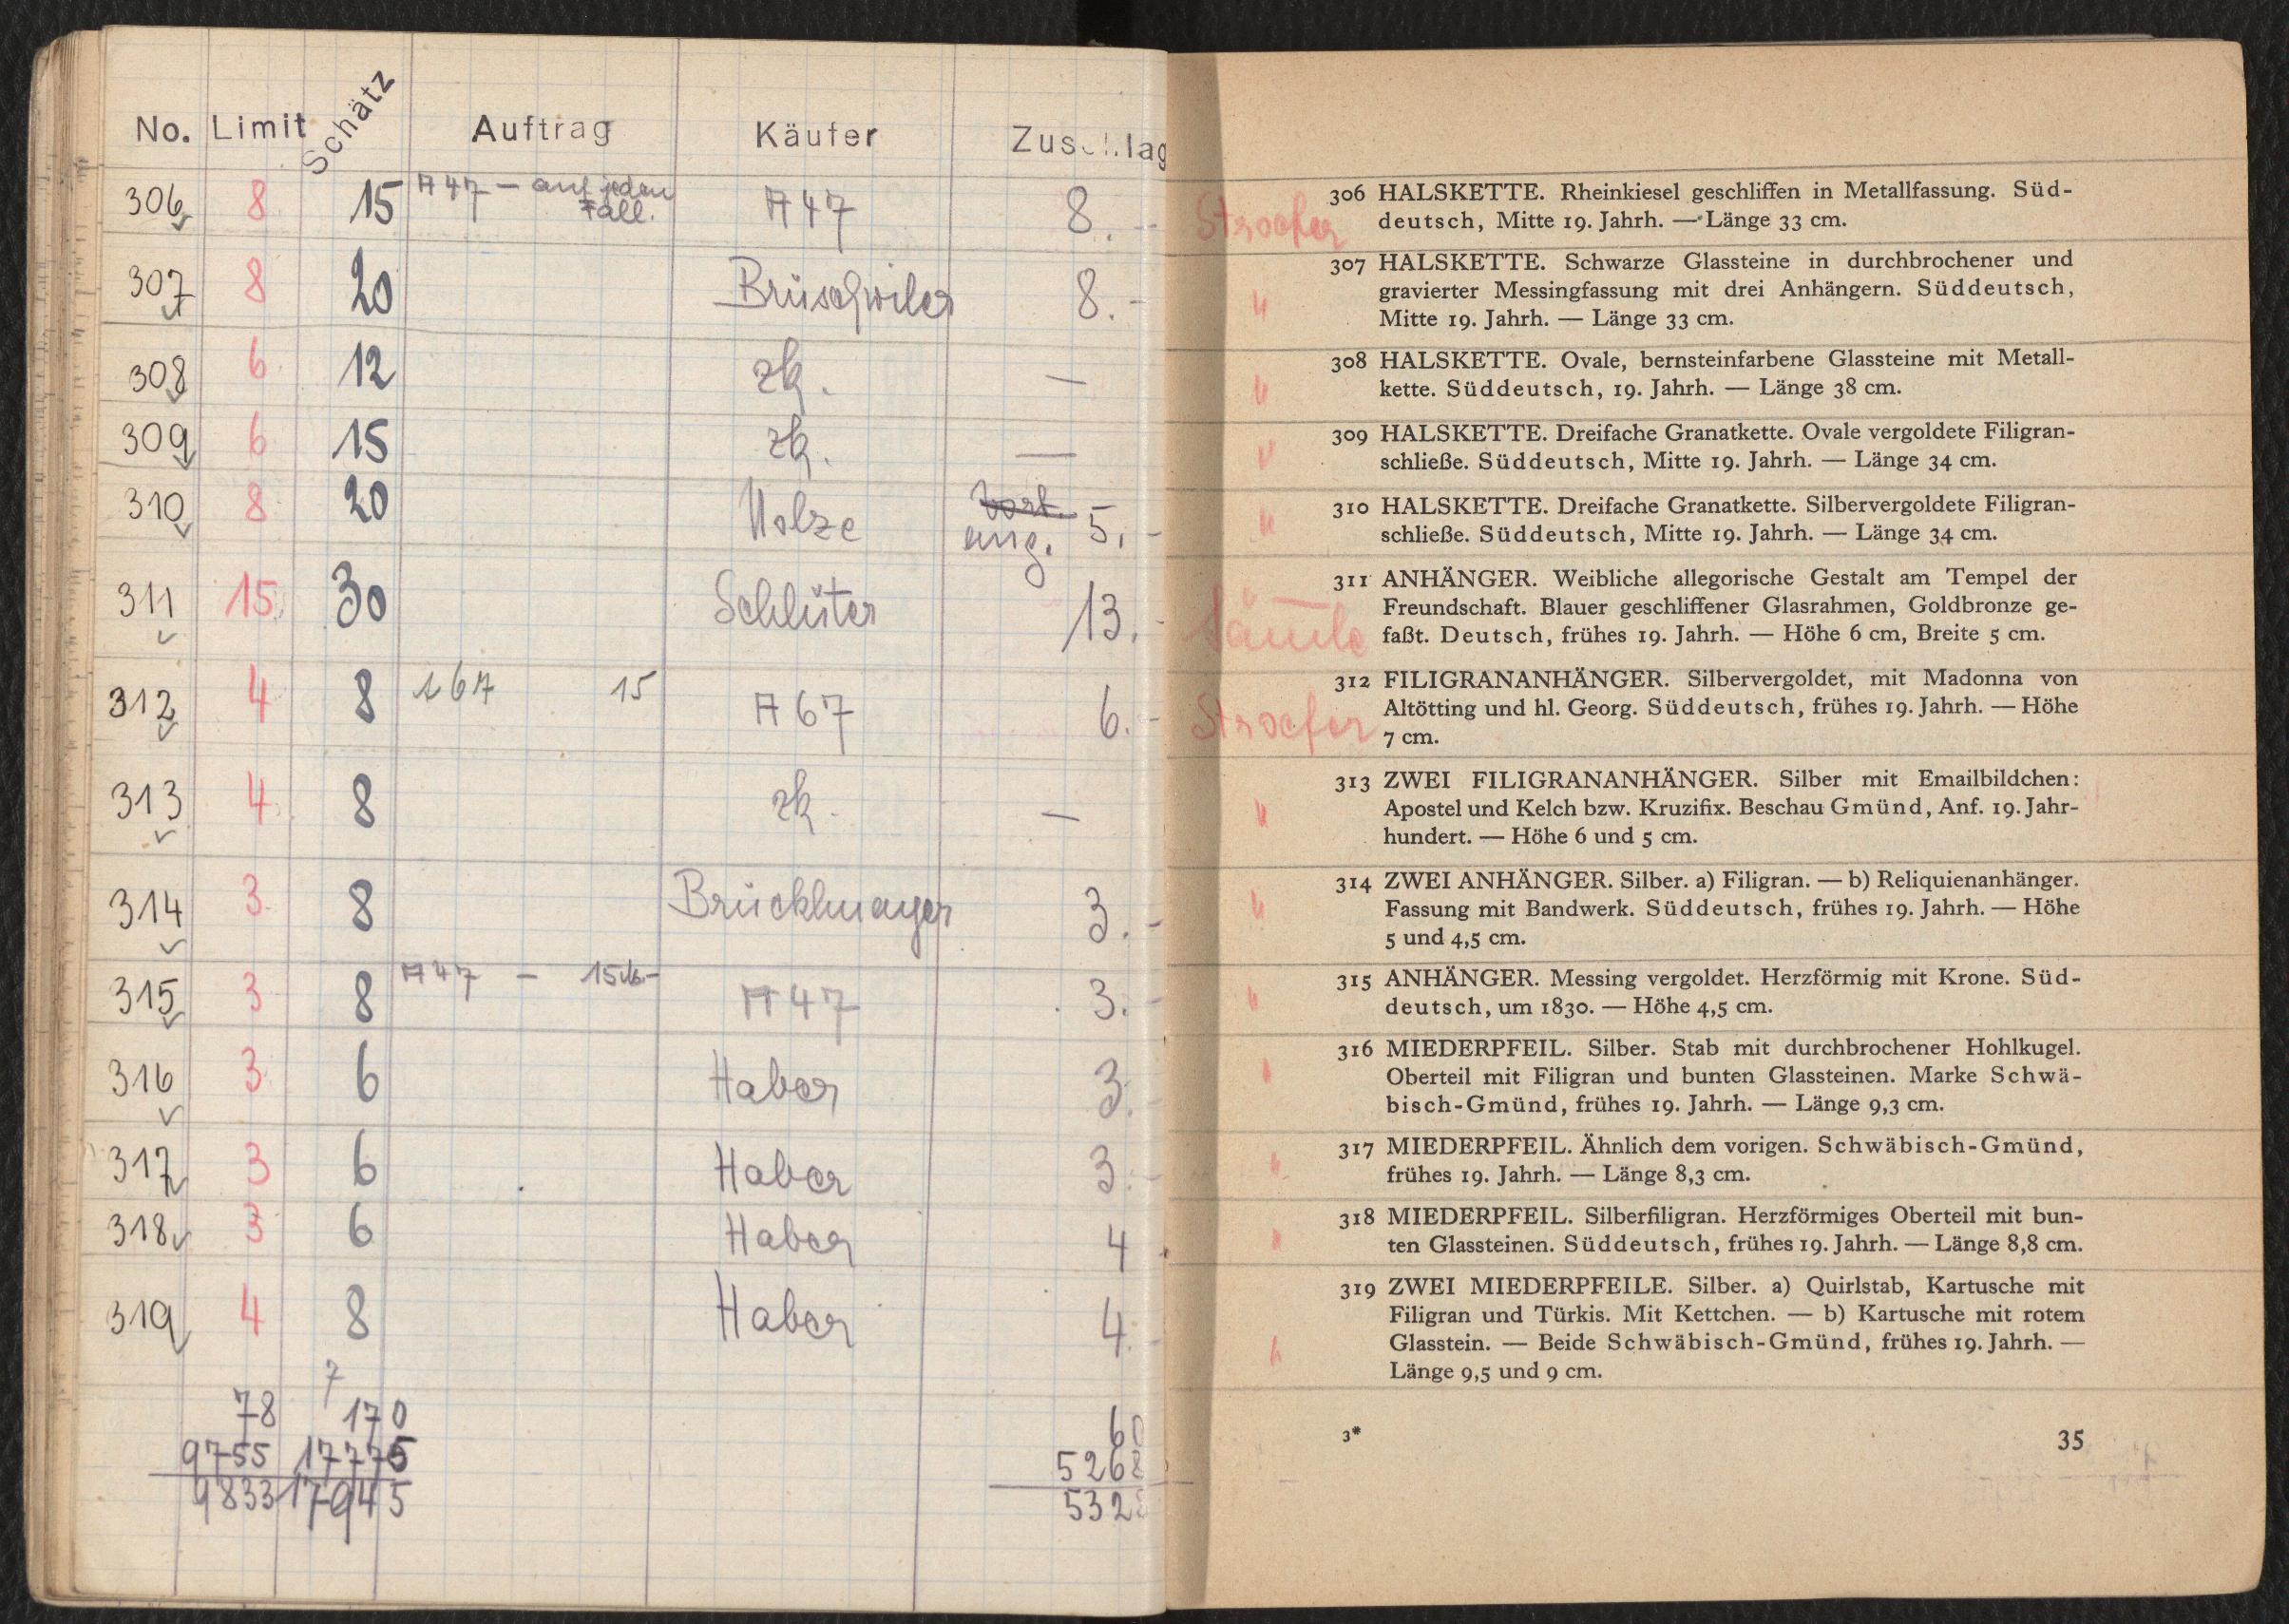 No. Limit Schätz Auftrag Käufer Zuschlag
306 8 15 A47 – auf jeden Fall. A47 8.–
307 8 20 Brüschwiler 8.–
308 6 12 zk. —
309 6 15 zk. —
310 8 20 Holze ang. 5,–
311 15 30 Schlüter 13.–
312 4 8 167 15 A67 6.–
313 4 8 zk. —
314 3 8 Brücklmayer 3.–
315 3 8 A47 – 15 A47 3.–
316 3 6 Haber 3.–
317 3 6 Haber 3.–
318 3 6 Haber 4
319 4 8 Haber 4.–
7
78 170 60
9755 17775 5268
9833 17945 5328
306 HALSKETTE. Rheinkiesel geschliffen in Metallfassung. Süd-
deutsch, Mitte 19. Jahrh. — Länge 33 cm.
307 HALSKETTE. Schwarze Glassteine in durchbrochener und
gravierter Messingfassung mit drei Anhängern. Süddeutsch,
Mitte 19. Jahrh. — Länge 33 cm.
308 HALSKETTE. Ovale, bernsteinfarbene Glassteine mit Metall-
kette. Süddeutsch, 19. Jahrh. — Länge 38 cm.
309 HALSKETTE. Dreifache Granatkette. Ovale vergoldete Filigran-
schließe. Süddeutsch, Mitte 19. Jahrh. — Länge 34 cm.
310 HALSKETTE. Dreifache Granatkette. Silbervergoldete Filigran-
schließe. Süddeutsch, Mitte 19. Jahrh. — Länge 34 cm.
311 ANHÄNGER. Weibliche allegorische Gestalt am Tempel der
Freundschaft. Blauer geschliffener Glasrahmen, Goldbronze ge-
faßt. Deutsch, frühes 19. Jahrh. — Höhe 6 cm, Breite 5 cm.
312 FILIGRANANHÄNGER. Silbervergoldet, mit Madonna von
Altötting und hl. Georg. Süddeutsch, frühes 19. Jahrh. — Höhe
7 cm.
313 ZWEI FILIGRANANHÄNGER. Silber mit Emailbildchen:
Apostel und Kelch bzw. Kruzifix. Beschau Gmünd, Anf. 19. Jahr-
hundert. — Höhe 6 und 5 cm.
314 ZWEI ANHÄNGER. Silber. a) Filigran. — b) Reliquienanhänger.
Fassung mit Bandwerk. Süddeutsch, frühes 19. Jahrh. — Höhe
5 und 4,5 cm.
315 ANHÄNGER. Messing vergoldet. Herzförmig mit Krone. Süd-
deutsch, um 1830. — Höhe 4,5 cm.
316 MIEDERPFEIL. Silber. Stab mit durchbrochener Hohlkugel.
Oberteil mit Filigran und bunten Glassteinen. Marke Schwä-
bisch-Gmünd, frühes 19. Jahrh. — Länge 9,3 cm.
317 MIEDERPFEIL. Ähnlich dem vorigen. Schwäbisch-Gmünd,
frühes 19. Jahrh. — Länge 8,3 cm.
318 MIEDERPFEIL. Silberfiligran. Herzförmiges Oberteil mit bun-
ten Glassteinen. Süddeutsch, frühes 19. Jahrh. — Länge 8,8 cm.
319 ZWEI MIEDERPFEILE. Silber. a) Quirlstab, Kartusche mit
Filigran und Türkis. Mit Kettchen. — b) Kartusche mit rotem
Glasstein. — Beide Schwäbisch-Gmünd, frühes 19. Jahrh. —
Länge 9,5 und 9 cm.
3*
35